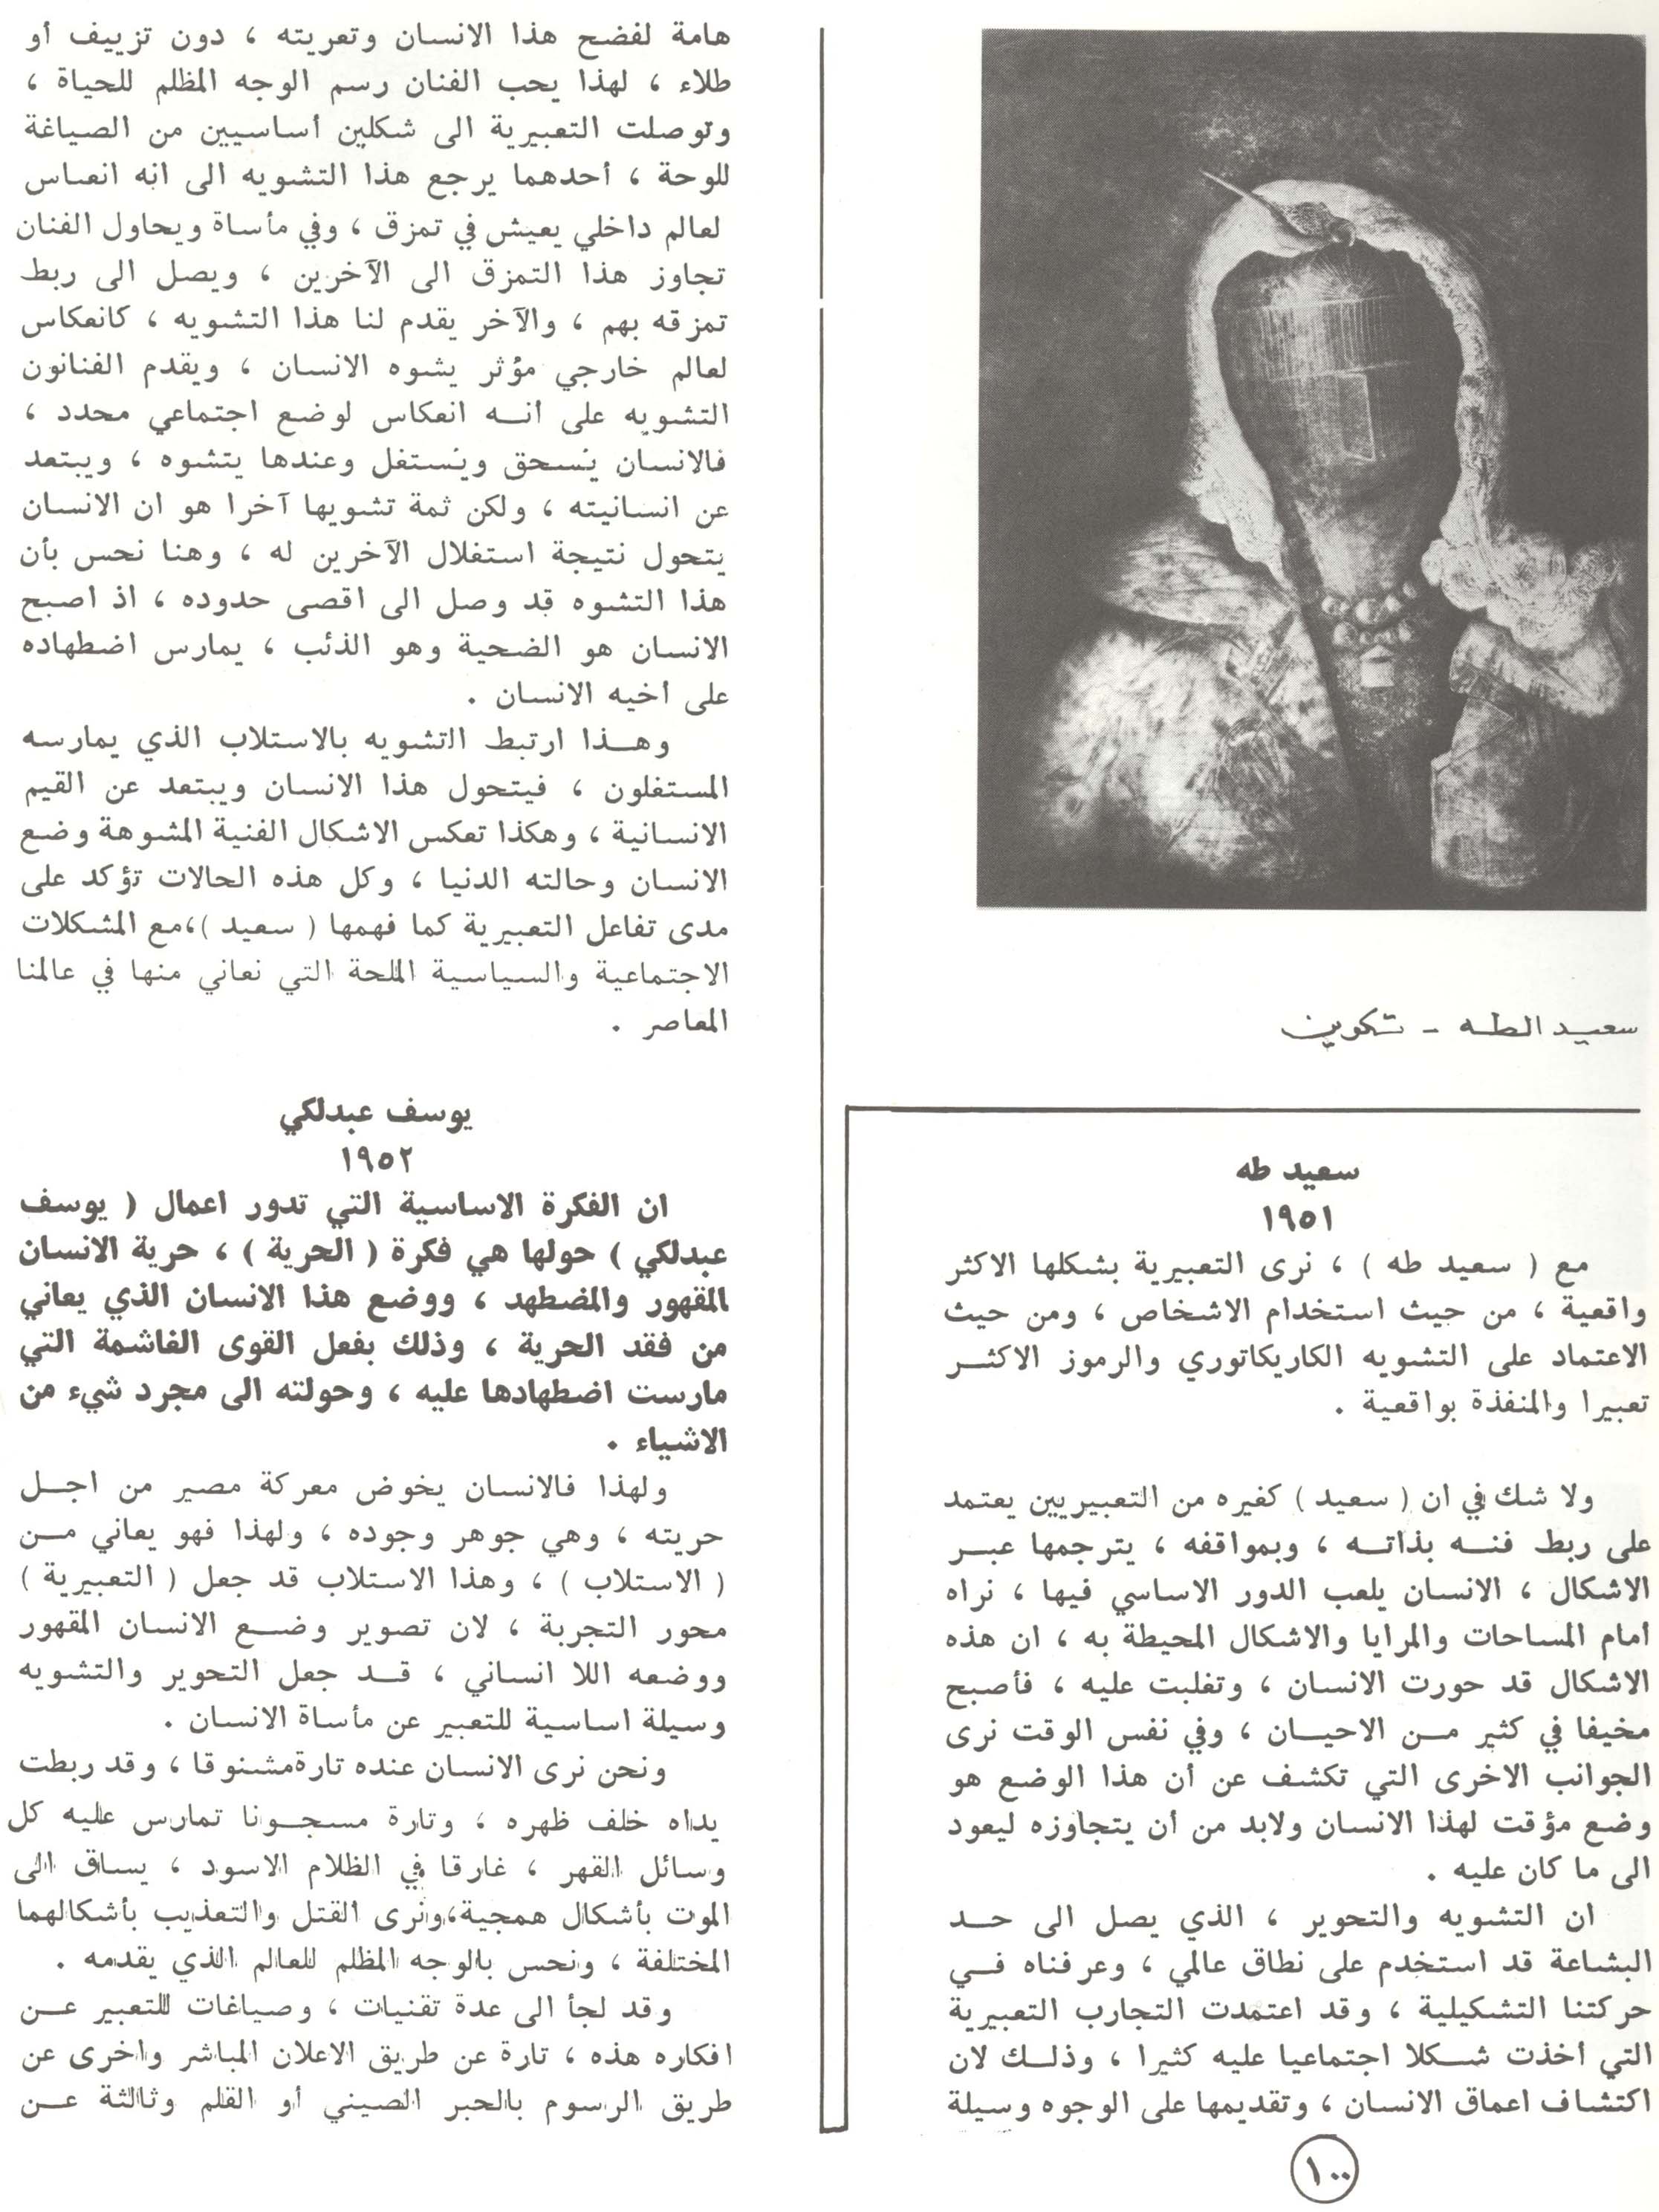 سعيد الطه - تكوين
سعيد طه
١٩٥١
مع ( سعيد طه ) ، نرى التعبيرية بشكلها الاكثر
واقعية ، من حيث استخدام الاشخاص ، ومن حيث
الاعتماد على التشويه الكاريكاتوري والرموز الاكثر
تعبيرا والمنفذة بواقعية .
ولا شك في ان ( سعيد ) كغيره من التعبيريين يعتمد
على ربط فنه بذاته ، وبمواقفه ، يترجمها عبر
الاشكال ، الانسان يلعب الدور الاساسي فيها ، نراه
أمام المساحات والمرايا والاشكال المحيطة به ، ان هذه
الاشكال قد حورت الانسان ، وتغلبت عليه ، فأصبح
مخيفا في كثير من الاحيان ، وفي نفس الوقت نرى
الجوانب الاخرى التي تكشف عن أن هذا الوضع هو
وضع مؤقت لهذا الانسان ولابد من أن يتجاوزه ليعود
الى ما كان عليه .
ان التشويه والتحوير ، الذي يصل الى حد
البشاعة قد استخدم على نطاق عالمي ، وعرفناه في
حركتنا التشكيلية ، وقد اعتمدت التجارب التعبيرية
التي أخذت شكلا اجتماعيا عليه كثيرا ، وذلك لان
اكتشاف اعماق الانسان ، وتقديمها على الوجوه وسيلة
هامة لفضح هذا الانسان وتعريته ، دون تزييف أو
طلاء ، لهذا يحب الفنان رسم الوجه المظلم للحياة ،
وتوصلت التعبيرية الى شكلين أساسيين من الصياغة
للوحة ، أحدهما يرجع هذا التشويه الى انه انعباس
لعالم داخلي يعيش في تمزق ، وفي مأساة ويحاول الفنان
تجاوز هذا التمزق الى الآخرين ، ويصل الى ربط
تمزقه بهم ، والآخر يقدم لنا هذا التشويه ، كانعكاس
لعالم خارجي مؤثر يشوه الانسان ، ويقدم الفنانون
التشويه على أنه انعكاس لوضع اجتماعي محدد ،
فالانسان يُسحق ويُستغل وعندها يتشوه ، ويبتعد
عن انسانيته ، ولكن ثمة تشويها آخرا هو ان الانسان
يتحول نتيجة استغلال الآخرين له ، وهنا نحس بأن
هذا التشوه قد وصل الى اقصى حدوده ، اذ اصبح
الانسان هو الضحية وهو الذئب ، يمارس اضطهاده
على أخيه الانسان .
وهذا ارتبط التشويه بالاستلاب الذي يمارسه
المستغلون ، فيتحول هذا الانسان ويبتعد عن القيم
الانسانية ، وهكذا تعكس الاشكال الفنية المشوهة وضع
الانسان وحالته الدنيا ، وكل هذه الحالات تؤكد على
مدى تفاعل التعبيرية كما فهمها ( سعيد )،مع المشكلات
الاجتماعية والسياسية الملحة التي نعاني منها في عالمنا
المعاصر .
يوسف عبدلكي
١٩٥٢
ان الفكرة الاساسية التي تدور اعمال ( يوسف
عبدلكي ) حولها هي فكرة ( الحرية ) ، حرية الانسان
المقهور والمضطهد ، ووضع هذا الانسان الذي يعاني
من فقد الحرية ، وذلك بفعل القوى الغاشمة التي
مارست اضطهادها عليه ، وحولته الى مجرد شيء من
الاشياء .
ولهذا فالانسان يخوض معركة مصير من اجل
حريته ، وهي جوهر وجوده ، ولهذا فهو يعاني من
( الاستلاب ) ، وهذا الاستلاب قد جعل ( التعبيرية )
محور التجربة ، لان تصوير وضع الانسان المقهور
ووضعه اللا انساني ، قد جعل التحوير والتشويه
وسيلة اساسية للتعبير عن مأساة الانسان .
ونحن نرى الانسان عنده تارة مشنوقا ، وقد ربطت
يداه خلف ظهره ، وتارة مسجونا تمارس عليه كل
وسائل القهر ، غارقا في الظلام الاسود ، يساق الى
الموت بأشكال همجية،ونرى القتل والتعذيب بأشكالهما
المختلفة ، ونحس بالوجه المظلم للعالم الذي يقدمه .
وقد لجأ الى عدة تقنيات ، وصياغات للتعبير عن
افكاره هذه ، تارة عن طريق الاعلان المباشر واخرى عن
طريق الرسوم بالحبر الصيني أو القلم وثالثة عن
١٠٠